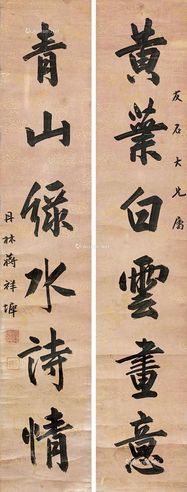 友石大兄属
黄葉白雲畫意
青山綠水詩情
丹林蔣祥墀